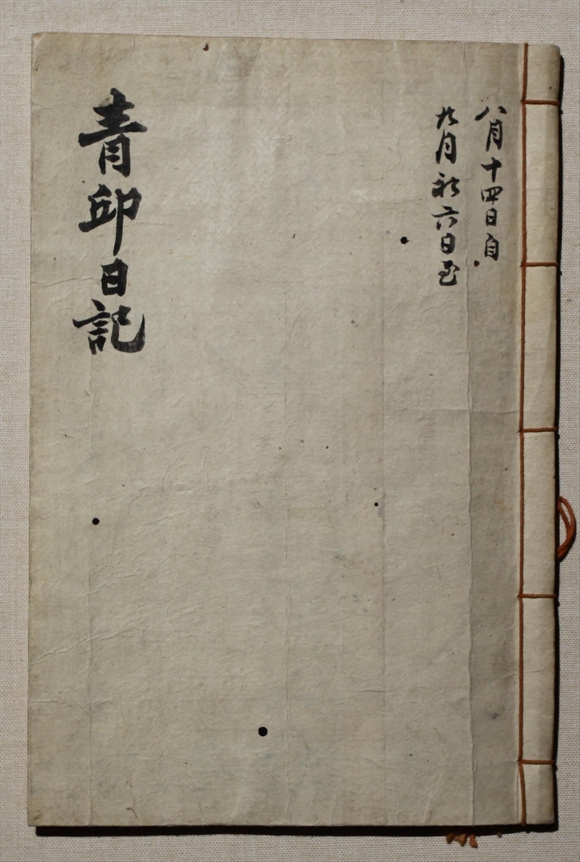 八月十四日自
九月初六日至
青邱日記